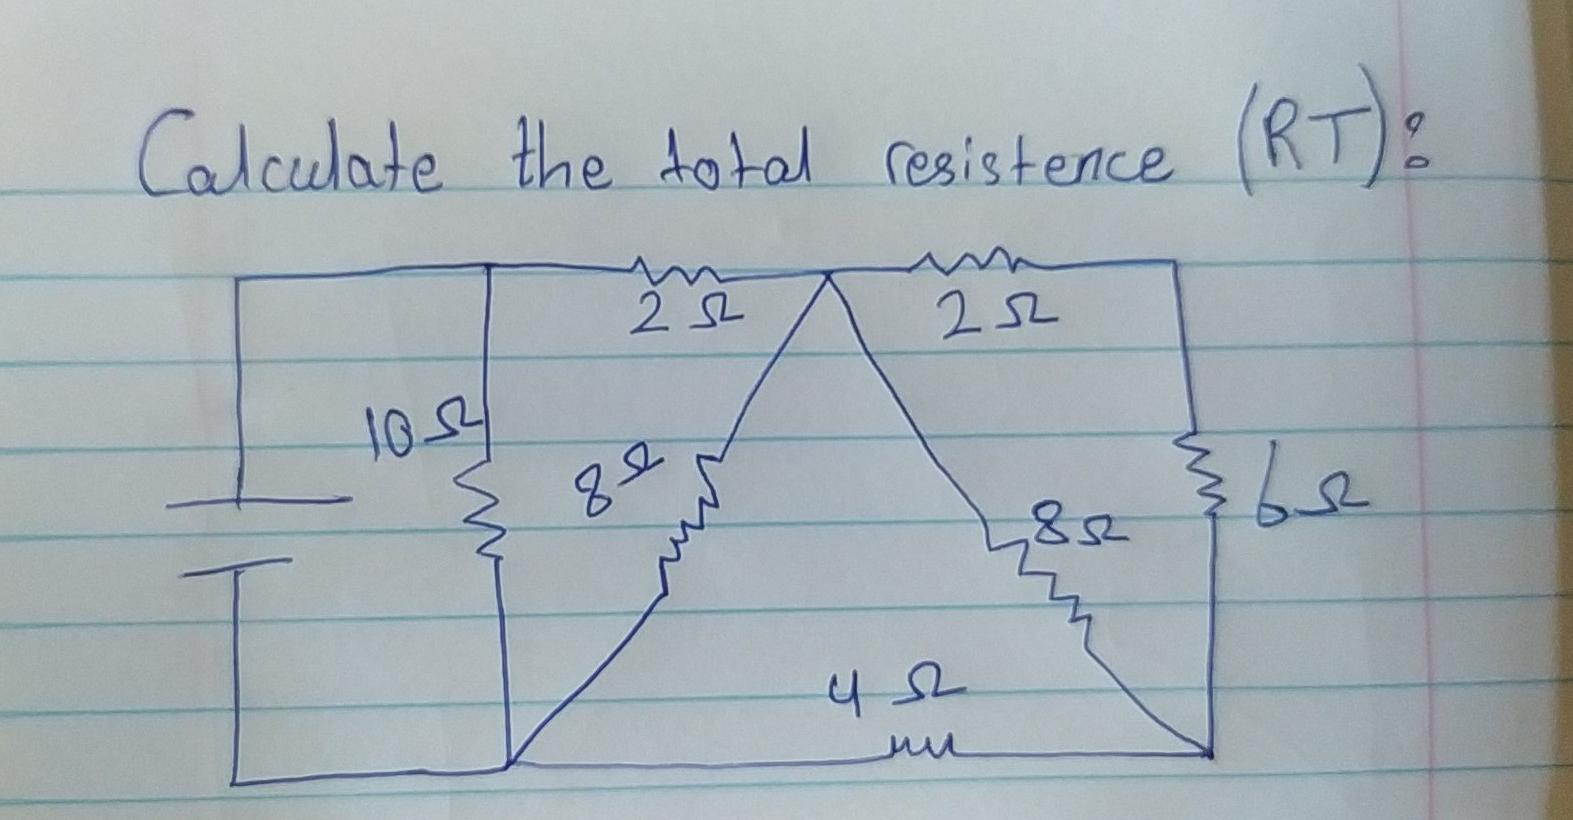 Calculate the total resistence (RT):
2 Ω
2 Ω
10 Ω
8 Ω
8 Ω
6 Ω
4 Ω